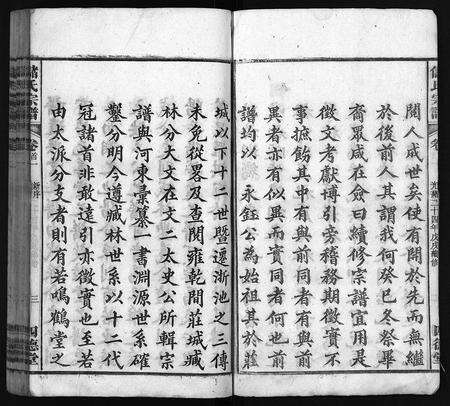 閱人成世矣使有開於先而無繼
於後前人其謂我何癸巳冬祭畢
齋眾咸在僉曰續修宗譜宜用是
徵文考獻博引旁稽務期徵實不
事摭飾其中有與前同者也與前
異者亦有似異而實同者何也前
譜均以永鈺公為始祖其於莊
城以下十二世暨遷浙池之三傳
未免從畧及查閱雍乾間莊城臧
林分大文在文二太史公所輯宗
譜與河東景纂一書淵源世系確
鑿分明今遵臧林世系以十二代
冠諸首非敢遠引亦徵實也至若
由大派分支者則有若鳴鶴堂之
氏宗譜
卷首
新序
三
四德堂